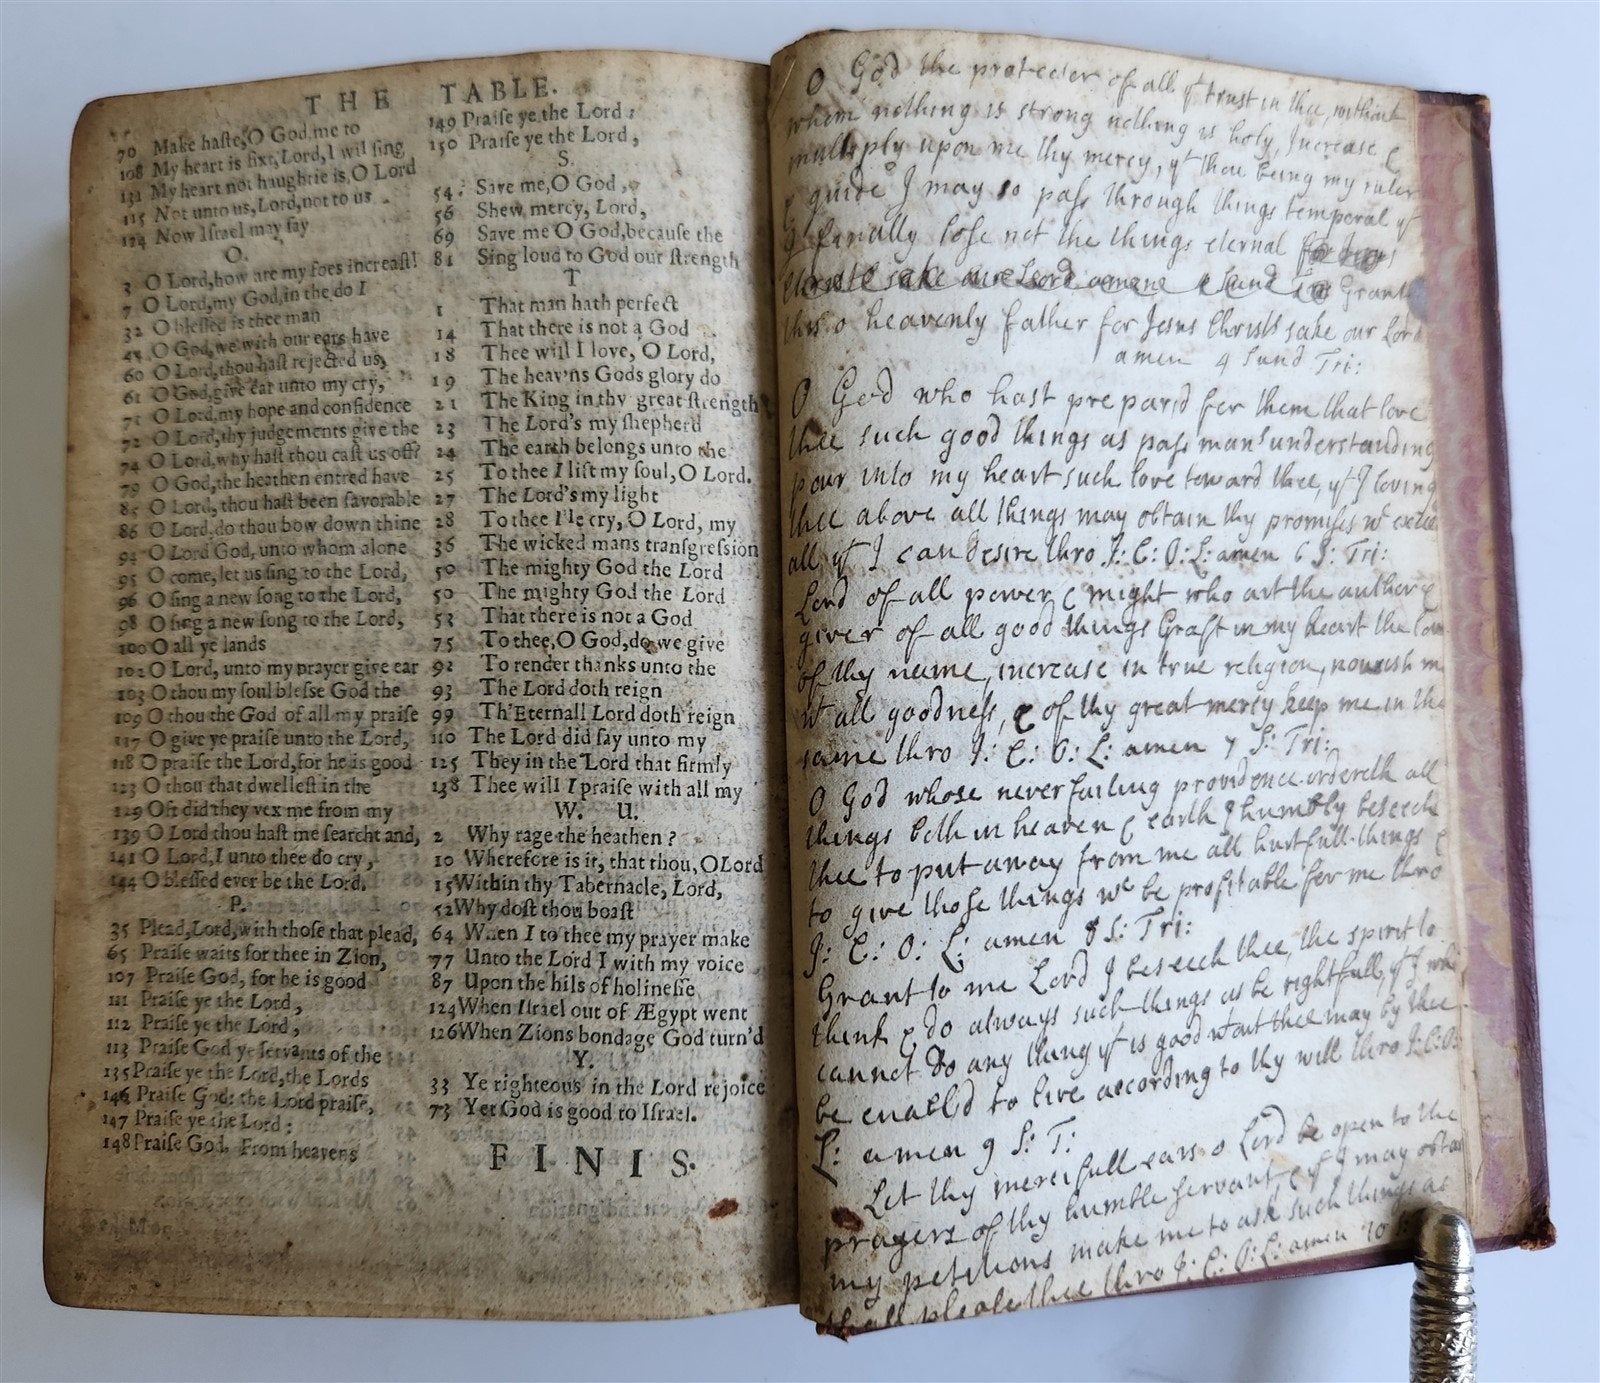 THE TABLE.
70 Make haſte, O God, me to
108 My heart is fixt, Lord, I wil ſing
131 My heart not haughtie is, O Lord
115 Not unto us, Lord, not to us
124 Now Iſrael may ſay
O.
3 O Lord, how are my foes increaſt!
7 O Lord, my God, in the do I
32 O bleſſed is thee man
44 O God, we with our ears have
60 O Lord, thou haſt rejected us,
61 O God, give ear unto my cry,
71 O Lord, my hope and confidence
72 O Lord, thy judgements give the
74 O Lord, why haſt thou caſt us off?
79 O God, the heathen entred have
85 O Lord, thou haſt been favorable
86 O Lord, do thou bow down thine
94 O Lord God, unto whom alone
95 O come, let us ſing to the Lord,
96 O ſing a new ſong to the Lord,
98 O ſing a new ſong to the Lord,
100 O all ye lands
102 O Lord, unto my prayer give ear
103 O thou my ſoul bleſſe God the
109 O thou the God of all my praiſe
117 O give ye praiſe unto the Lord,
118 O praiſe the Lord, for he is good
123 O thou that dwelleſt in the
129 Oft did they vex me from my
139 O Lord thou haſt me ſearcht and,
141 O Lord, I unto thee do cry,
144 O bleſſed ever be the Lord,
P.
35 Plead, Lord, with thoſe that plead,
65 Praiſe waits for thee in Zion,
107 Praiſe God, for he is good
111 Praiſe ye the Lord,
112 Praiſe ye the Lord,
113 Praiſe God ye ſervants of the
135 Praiſe ye the Lord, the Lords
146 Praiſe God: the Lord praiſe,
147 Praiſe ye the Lord:
148 Praiſe God. From heavens
149 Praiſe ye the Lord:
150 Praiſe ye the Lord,
S.
54 Save me, O God,
56 Shew mercy, Lord,
69 Save me O God, becauſe the
81 Sing loud to God our ſtrength
T
1 That man hath perfect
14 That there is not a God
18 Thee will I love, O Lord,
19 The heav'ns Gods glory do
21 The King in thy great ſtrength
23 The Lord's my ſhepherd
24 The earth belongs unto the
25 To thee I lift my ſoul, O Lord.
27 The Lord's my light
28 To thee I'le cry, O Lord, my
36 The wicked mans tranſgreſſion
50 The mighty God the Lord
50 The mighty God the Lord
53 That there is not a God
75 To thee, O God, do we give
92 To render thanks unto the
93 The Lord doth reign
99 Th'Eternall Lord doth reign
110 The Lord did ſay unto my
125 They in the Lord that firmly
138 Thee will I praiſe with all my
W. U.
2 Why rage the heathen?
10 Wherefore is it, that thou, O Lord
15 Within thy Tabernacle, Lord,
52 Why doſt thou boaſt
64 When I to thee my prayer make
77 Unto the Lord I with my voice
87 Upon the hils of holineſſe
124 When Iſrael out of Ægypt went
126 When Zions bondage God turn'd
Y.
33 Ye righteous in the Lord rejoice
73 Yet God is good to Iſrael.
FINIS.
O God the protecter of all yt trust in thee, without
whom nothing is strong nothing is holy, Increase &
multiply upon me thy mercy, yt thou being my ruler
& guide I may so pass through things temporal yt
I finally lose not the things eternal for Jesus
Christs sake our Lord amene 4 Sund Tri Grant
this o heavenly father for Jesus Christs sake our Lord
amen 4 Sund Tri:
O God who hast prepar'd for them that love
thee such good things as pass mans understanding
pour into my heart such love toward thee, yt I loving
thee above all things may obtain thy promises wc exceed
all yt I can desire thro J: C: O: L: amen 6 S: Tri:
Lord of all power & might who art the auther &
giver of all good things Graft in my heart the love
of thy name, increase in true religion, nourish me
wt all goodness, & of thy great mercy keep me in the
same thro J: C: O: L: amen 7 S: Tri:
O God whose never failing providence ordereth all
things both in heaven & earth I humbly beseech
thee to put away from me all hurtfull things &
to give those things wc be profitable for me thro
J: C: O: L: amen 8 S: Tri:
Grant to me Lord I beseech thee, the spirit to
think & do always such things as be rightfull, yt I who
cannot do any thing yt is good wtout thee may by thee
be enabl'd to live according to thy will thro J: C: O:
L: amen 9 S: T:
Let thy mercifull ears o Lord be open to the
prayers of thy humble servant & yt I may obtain
my petitions make me to ask such things as
shall please thee thro J: C: O: L: amen 10 S: